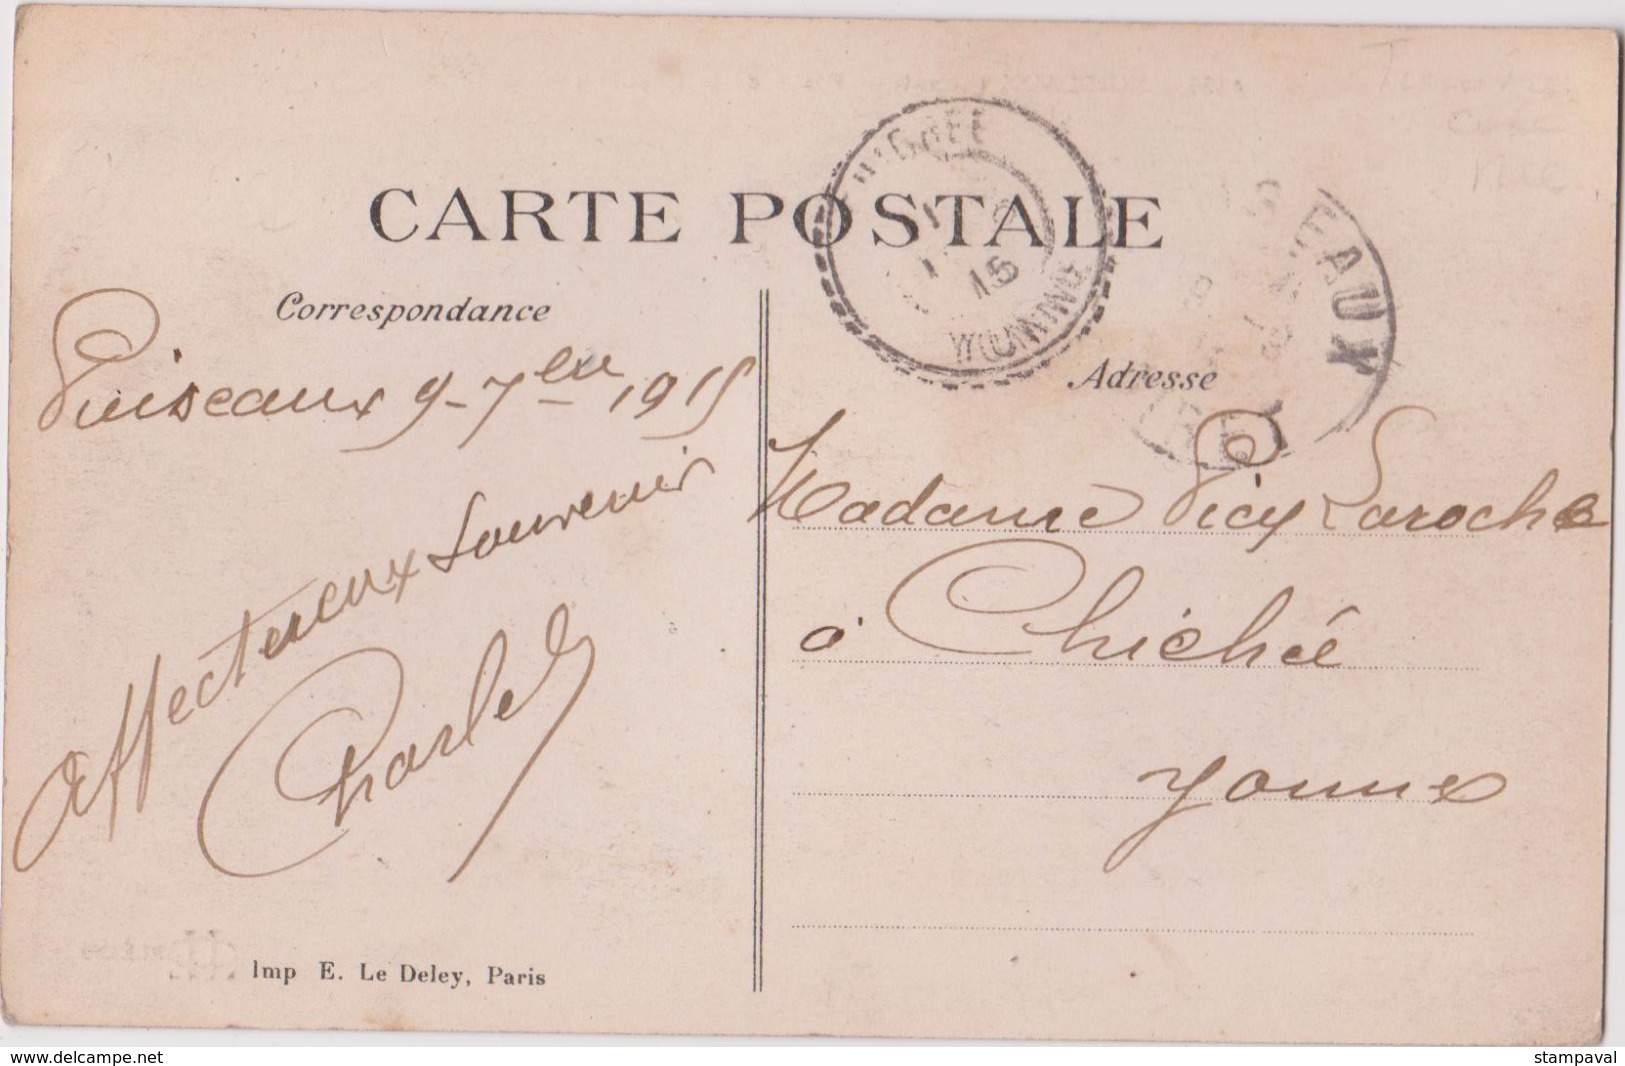 CARTE POSTALE
Correspondance
Puiseaux 9-7bre 1915
Affectueux Souvenir
Charles
Imp E. Le Deley, Paris
YONNE
15
SEAUX
Adresse
Madame Picq Laroche
à Chichée
Yonne
www.delcampe.net
stampaval